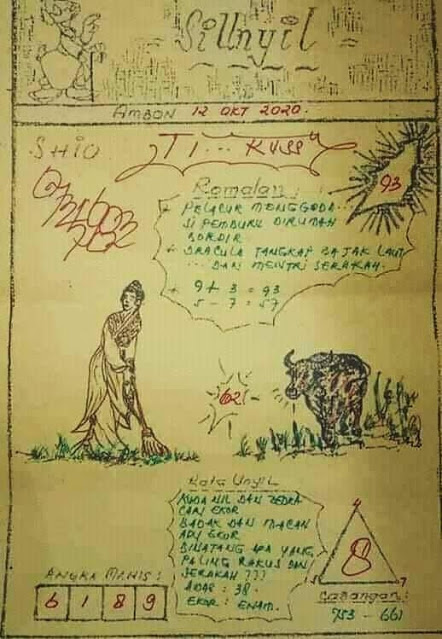 SiUnyil
AMBON 12 OKT 2020.
SHIO
TI... KUSS
93
Ramalan:
+ PELACUR MENGGODA...
SI PEMBURU DIRUMAH
BORDIR.
+ DRACULA TANGKAP BAJAK LAUT
... DAN MENTRI SERAKAH.
+ 9 + 3 = 93
5 - 7 = 57
621
Kata Unyil
KUDA NIL DAN ZEBRA
CARI EKOR
BADAK DAN MACAN
ADU EKOR
BINATANG APA YANG
PALING RAKUS DAN
SERAKAH ???
ADAS: 38.
EKOR: ENAM.
ANGKA MANIS:
6 1 8 9
4
8
7
Cabangan:
753 - 661